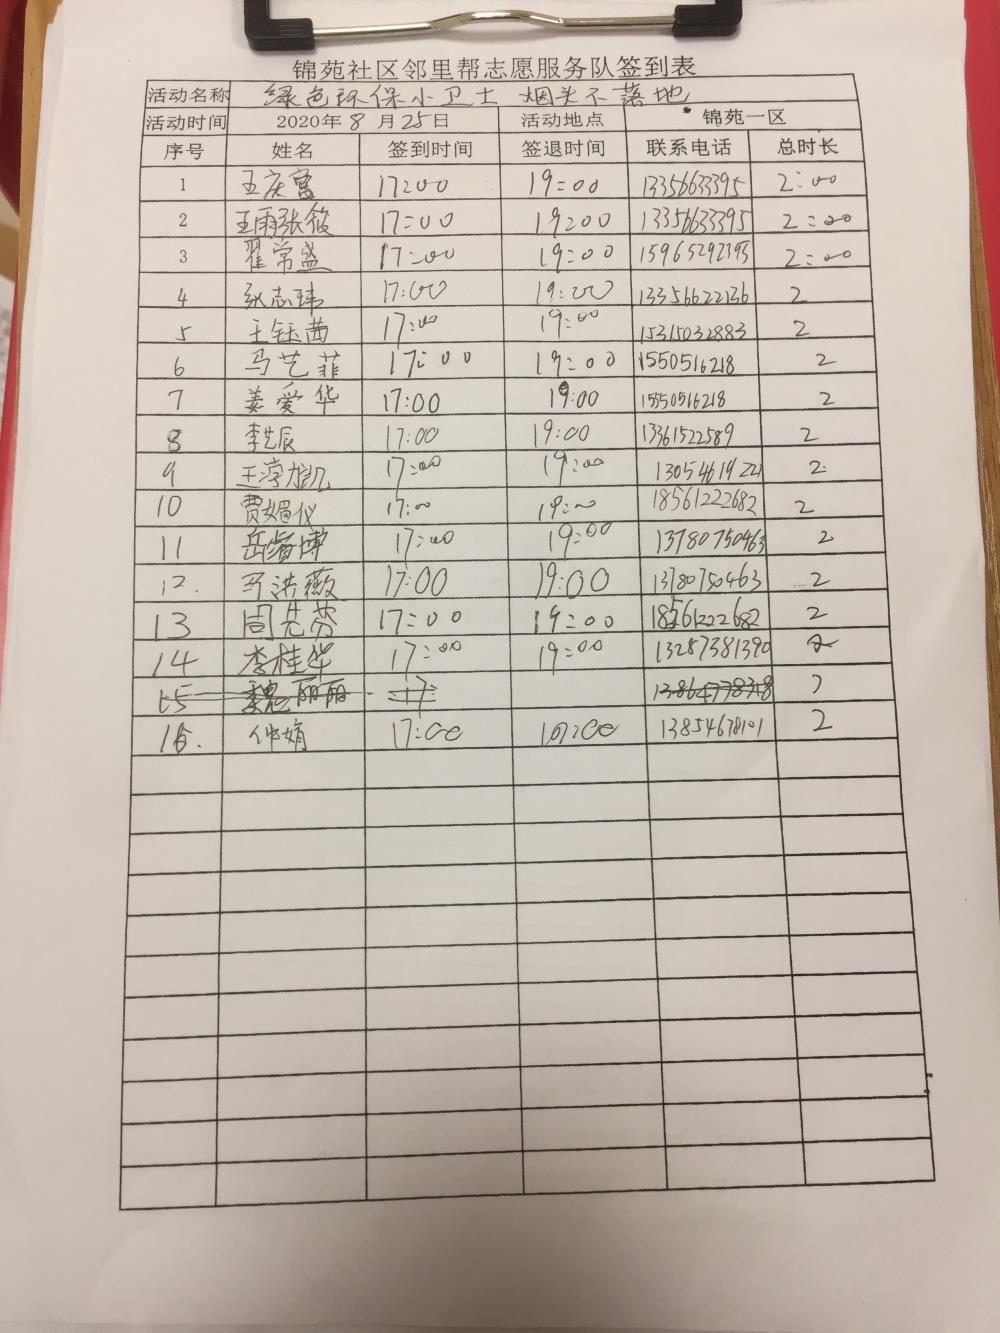 锦苑社区邻里帮志愿服务队签到表
活动名称 绿色环保小卫士 烟头不落地
活动时间 2020年8月25日 活动地点 锦苑一区
序号 姓名 签到时间 签退时间 联系电话 总时长
1 王庆富 17:00 19:00 13356633395 2:00
2 王雨张筱 17:00 19:00 13356633395 2:00
3 翟常盛 17:00 19:00 15965292395 2:00
4 张志玮 17:00 19:00 13356622136 2
5 王钰茜 17:00 19:00 15315032883 2
6 马艺菲 17:00 19:00 1550516218 2
7 姜爱华 17:00 19:00 1550516218 2
8 李艺辰 17:00 19:00 13361522589 2
9 17:00 19:00 2
10 贾媚仪 17:00 19:00 18561222682 2
11 17:00 19:00 13780750463 2
12. 马洪薇 17:00 19:00 13780750463 2
13 周先芬 17:00 19:00 18561222682 2
14 李桂华 17:00 19:00 13287381390 2
15 魏丽丽 17 13864778318
16. 仲娟 17:00 19:00 13854678101 2